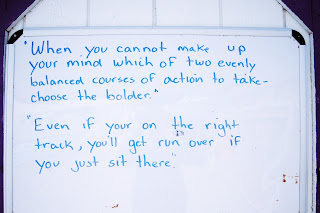 "When you cannot make up
your mind which of two evenly
balanced courses of action to take-
choose the bolder."
"Even if your on the right
track, you'll get run over if
you just sit there".